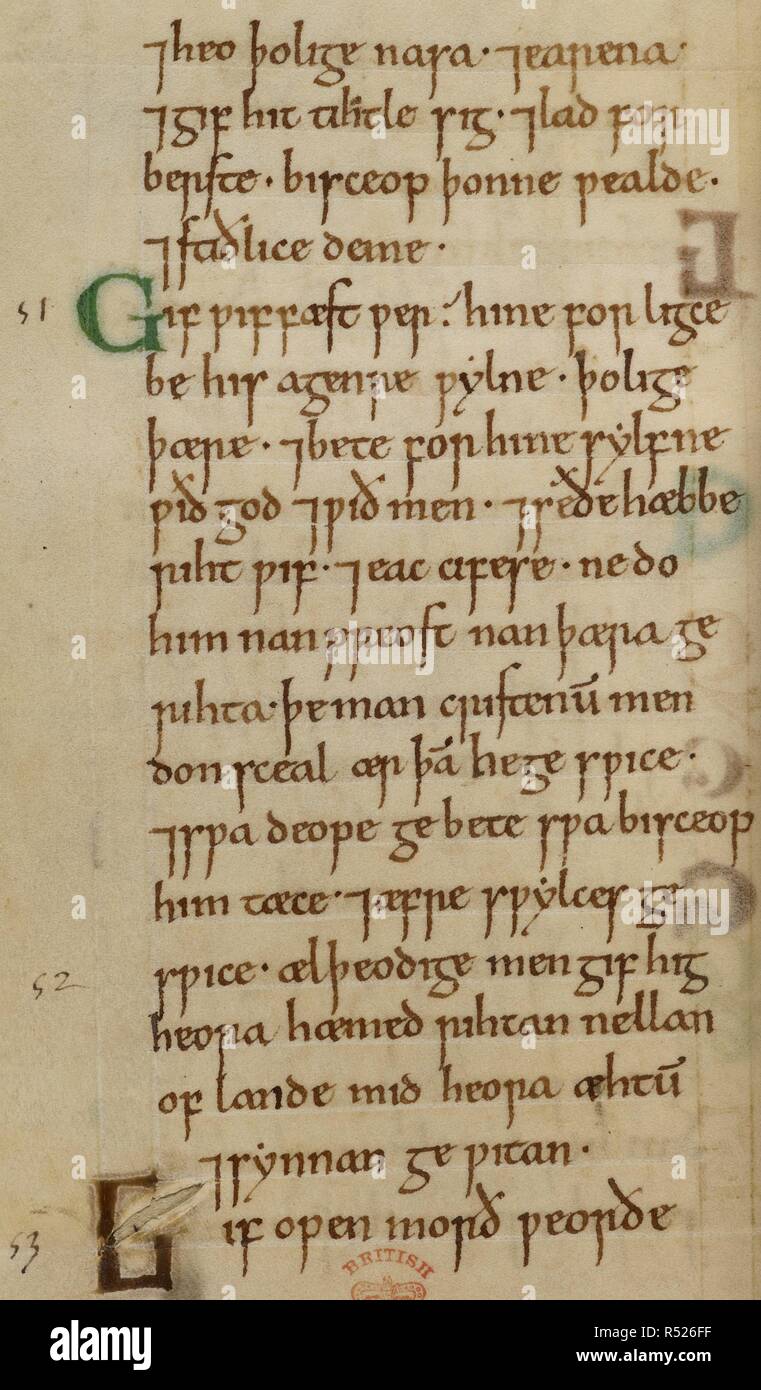 ⁊heo þolige nasa· ⁊earena·
⁊gif hit tihtle sig· ⁊lad for
berste· bisceop þonne ƿealde·
⁊stiðlice deme·
51 Gif ƿiffæst ƿer hine forligce
be his agenre ƿylne· þolige
þære· ⁊bete for hine sylfne
ƿið god ⁊ƿið men· ⁊seðe hæbbe
riht ƿif· ⁊eac cifese· ne do
him nan preost nan þæra ge
rihta· þe man cristenū men
don sceal ær þā he gesƿice·
⁊sƿa deope gebete sƿa bisceop
him tæce· ⁊æfre sƿylces ge
52 sƿice· ælþeodige men gif hig
heora hæmed rihtan nellan
of lande mid heora æhtū
⁊synnan geƿitan·
53 Gif open morð ƿeorðe
BRITISH
a alamy
alamy
Image ID: R526FF
www.alamy.com